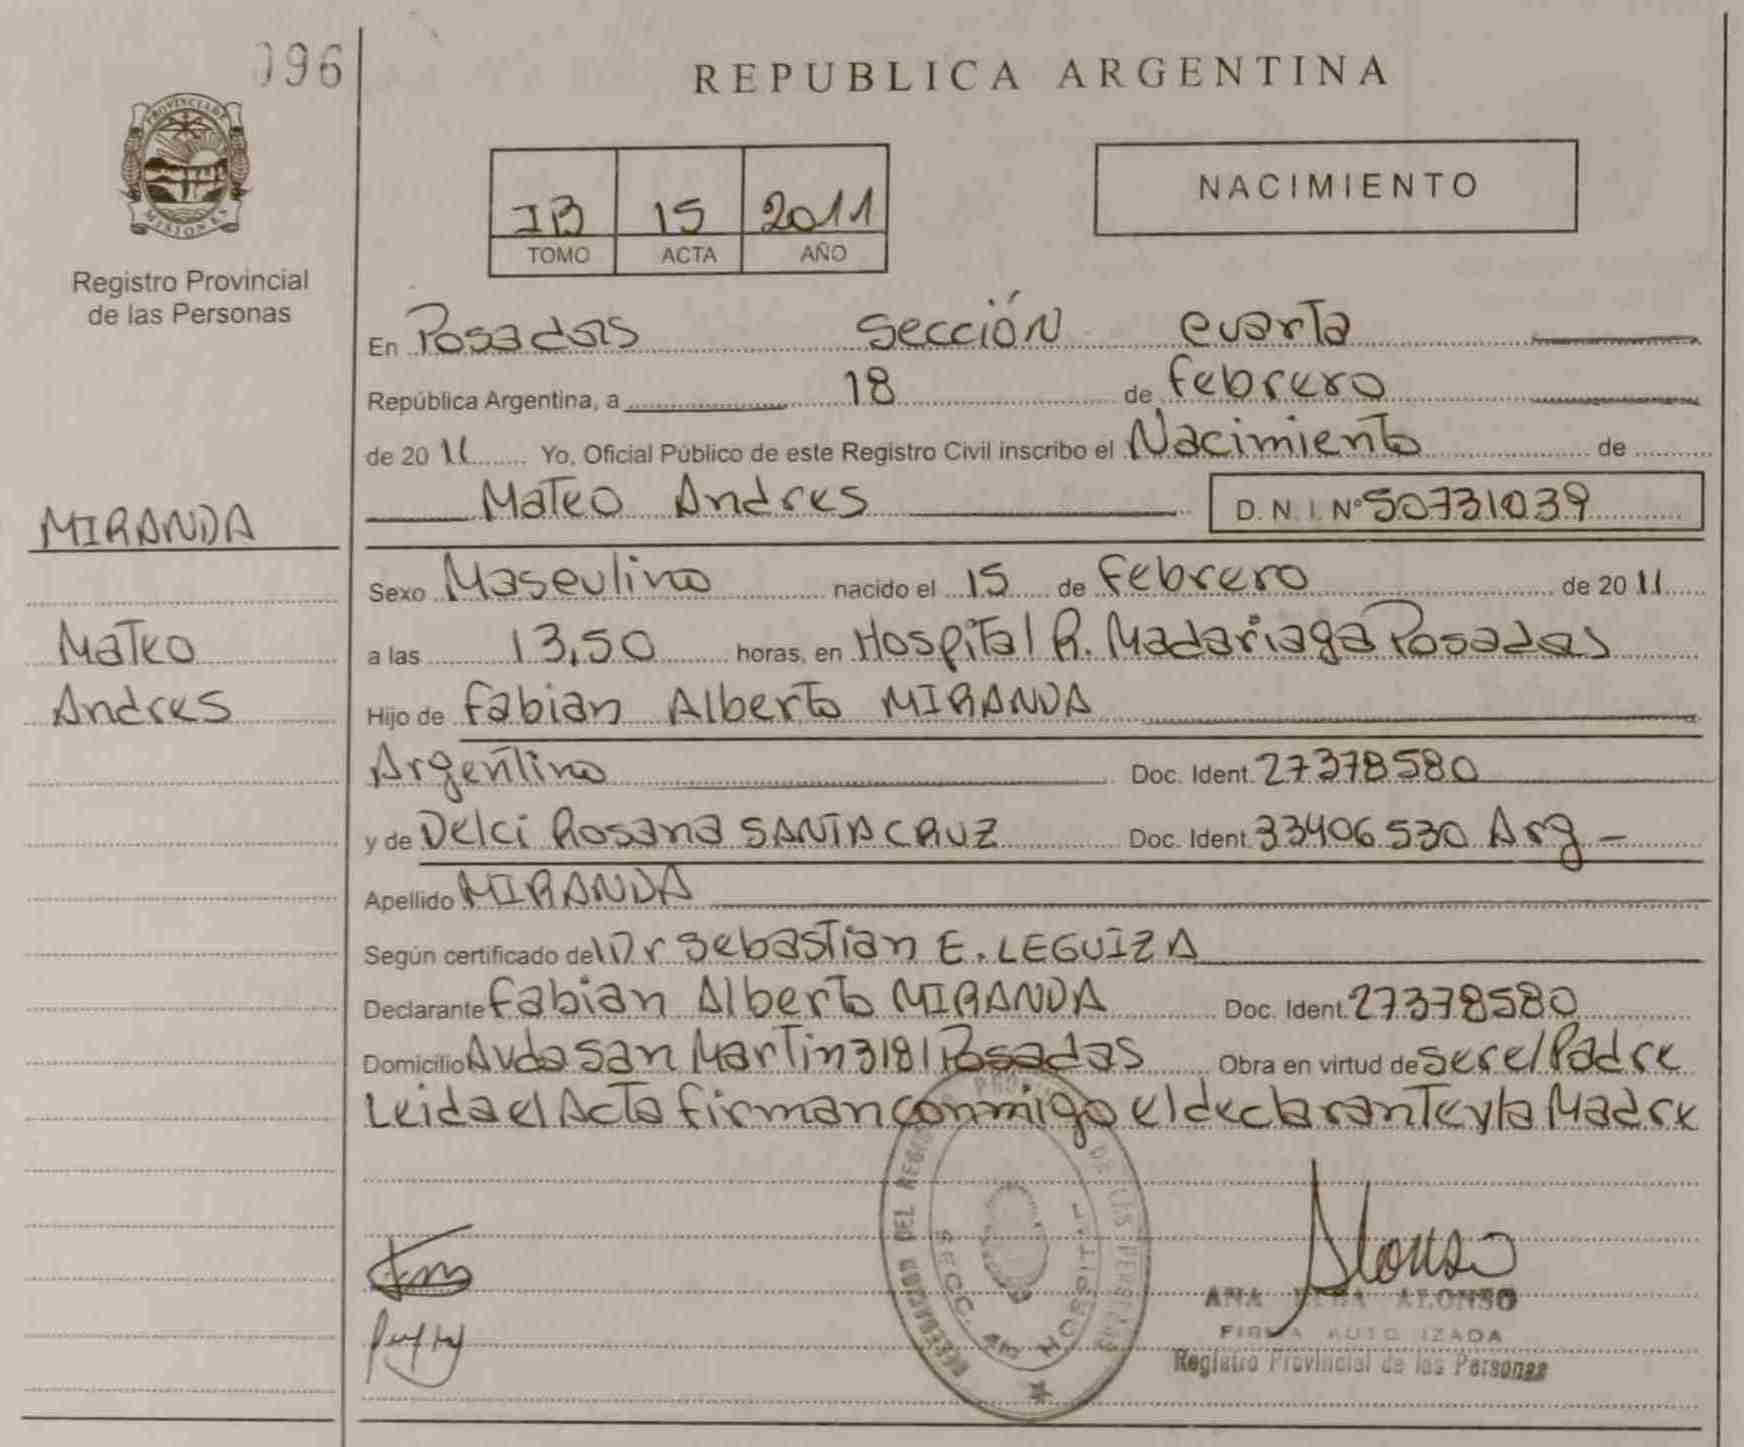 096
PROVINCIA DE
MISIONES
Registro Provincial
de las Personas
MIRANDA
Mateo
Andres
REPUBLICA ARGENTINA
IB 15 2011
TOMO ACTA AÑO
NACIMIENTO
En Posadas Sección cuarta
República Argentina, a 18 de febrero
de 2011 Yo, Oficial Público de este Registro Civil inscribo el Nacimiento de
Mateo Andres D.N.I. Nº 50731039
Sexo Masculino nacido el 15 de febrero de 2011
a las 13,50 horas, en Hospital R. Madariaga Posadas
Hijo de Fabian Alberto MIRANDA
Argentino Doc. Ident. 27378580
y de Delci Rosana SANTACRUZ Doc. Ident. 33406530 Arg -
Apellido MIRANDA
Según certificado del Dr Sebastian E. LEGUIZA
Declarante Fabian Alberto MIRANDA Doc. Ident. 27378580
Domicilio Avda San Martin 3181 Posadas Obra en virtud de ser el Padre
Leida el Acta firman conmigo el declarante y la Madre
DEL
SECC. 4ta HOSPITAL
Alonso
ANA ALONSO
FIRMA AUTORIZADA
Registro Provincial de las Personas